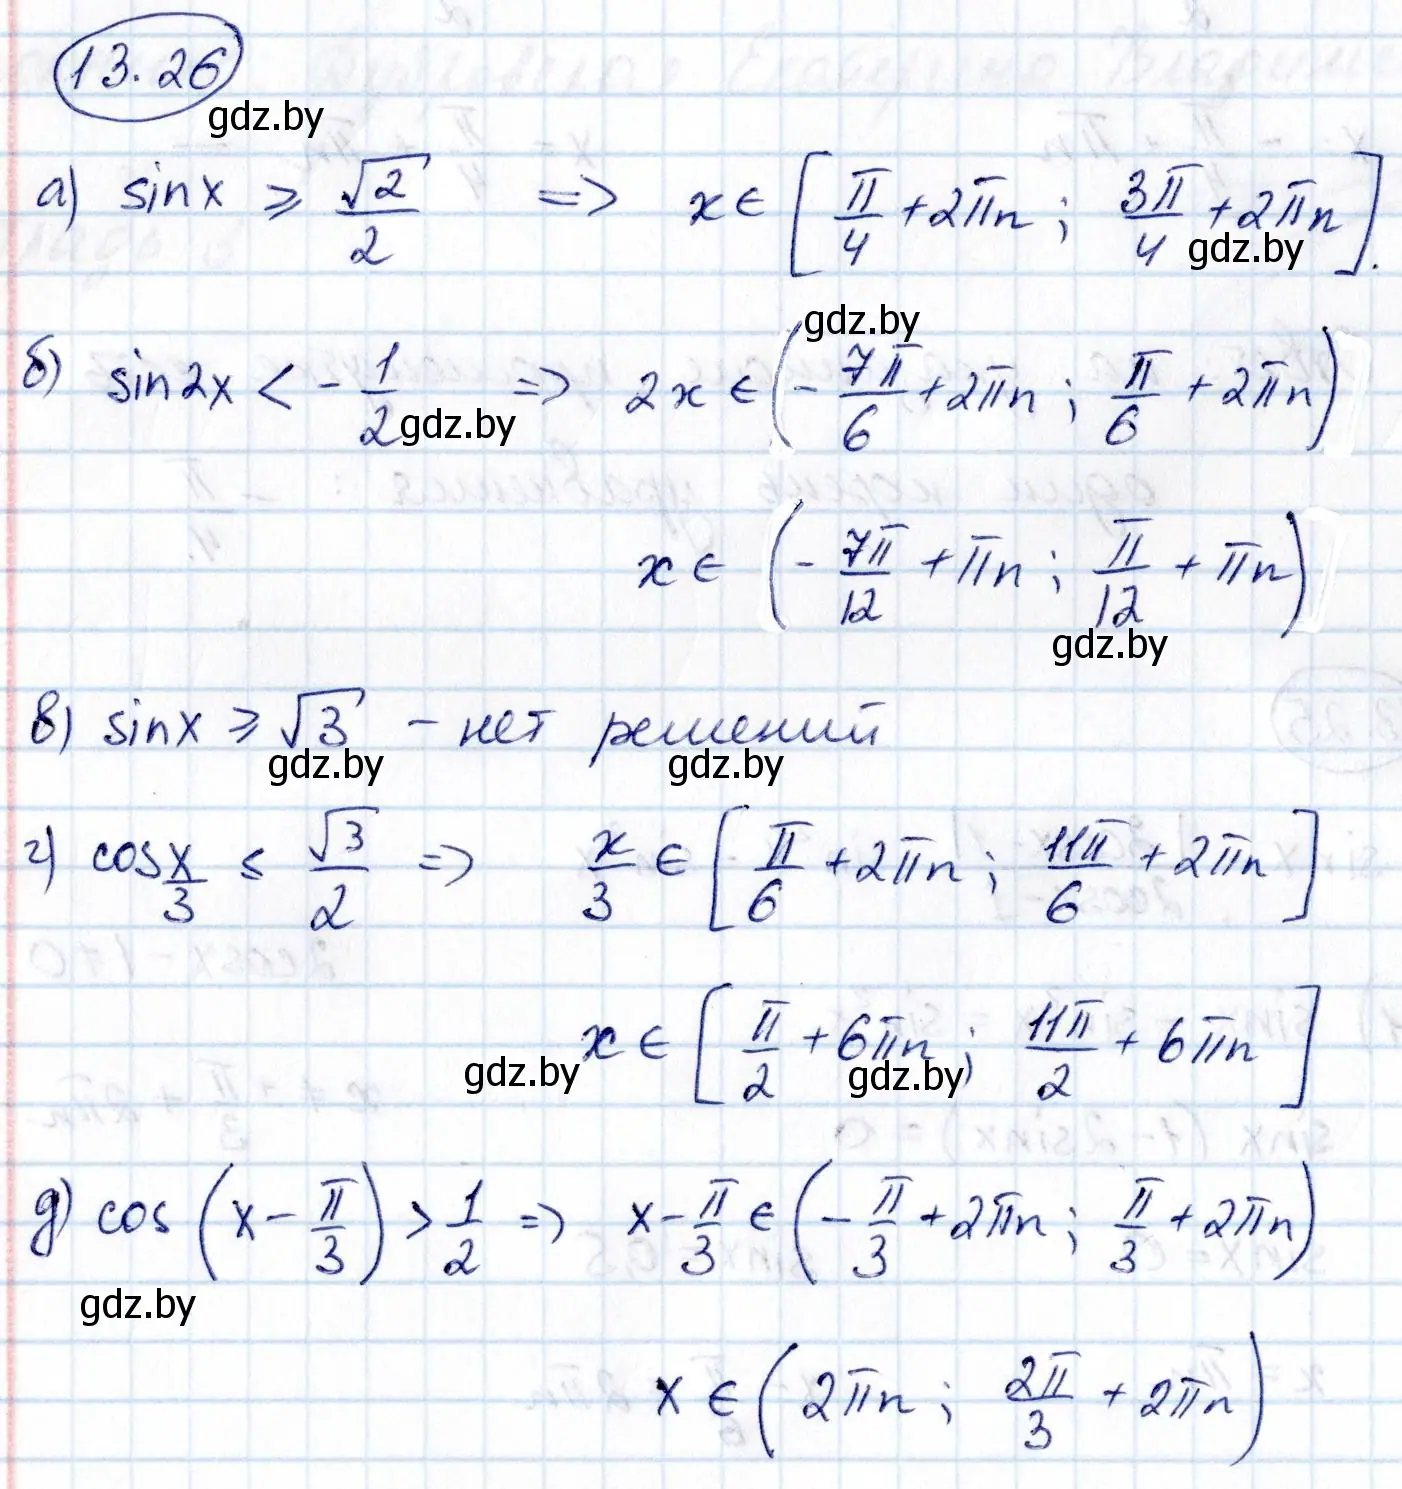 13.26
gdz.by
а) sinx ≥ √2/2 => x ∈ [π/4 + 2πn ; 3π/4 + 2πn].
gdz.by
gdz.by
б) sin2x < -1/2 => 2x ∈ (-7π/6 + 2πn ; π/6 + 2πn)
gdz.by
x ∈ (-7π/12 + πn ; π/12 + πn)
gdz.by
в) sinx ≥ √3 - нет решений
gdz.by gdz.by
г) cos x/3 ≤ √3/2 => x/3 ∈ [π/6 + 2πn ; 11π/6 + 2πn]
x ∈ [π/2 + 6πn ; 11π/2 + 6πn]
gdz.by gdz.by
д) cos (x - π/3) > 1/2 => x - π/3 ∈ (-π/3 + 2πn ; π/3 + 2πn)
gdz.by
x ∈ (2πn ; 2π/3 + 2πn)